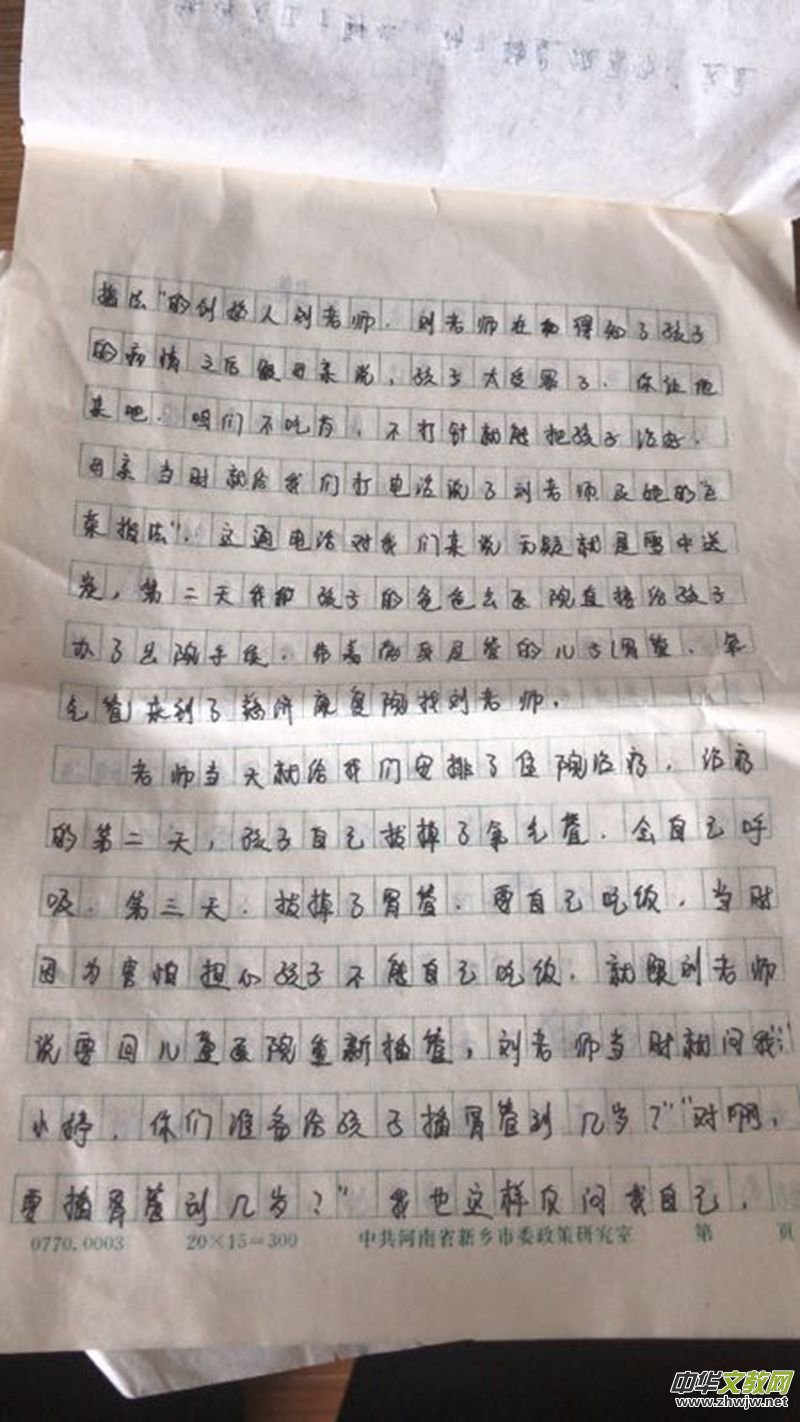 指法"的创始人刘老师。刘老师在得知了孩子
的病情之后跟母亲说，孩子太受罪了。你让他
来吧。咱们不吃药，不打针就能把孩子治好。
母亲当时就给我们打电话说了刘老师及她的"
指法"。这通电话对我们来说无疑就是雪中送
炭，第二天我和孩子的爸爸去医院直接给孩子
办了出院手续。带着满是管的儿子(胃管、氧
气管)来到了 康复院找刘老师。
老师当天就给我们安排了住院治疗，治疗
的第二天，孩子自己拔掉了氧气管。会自己呼
吸。第三天。拔掉了胃管。要自己吃饭，当时
因为害怕担心孩子不能自己吃饭。就跟刘老师
说要回儿童医院重新插管，刘老师当时就问我："
小婷，你们准备给孩子插胃管到几岁？""对啊，
要插胃管到几岁？"我也这样反问我自己，
0770.0003 20×15=300 中共河南省新乡市委政策研究室 第 頁
中华文教网
www.zhwjw.net